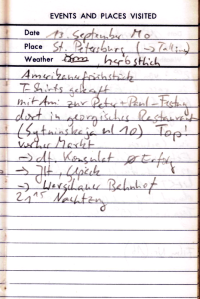 EVENTS AND PLACES VISITED
Date 13. September Mo
Place St. Petersburg (→ Tallinn)
Weather herbstlich
Amerikanerfrühstück
T-Shirts gekauft
mit Ami zur Peter + Paul-Festung
dort in georgisches Restaurant
(Sytninskaja ul 10) Top!
vorher Markt
→ dt. Konsulat Erfolg
→ Jh, Gepäck
→ Warschauer Bahnhof
21 15 Nachtzug